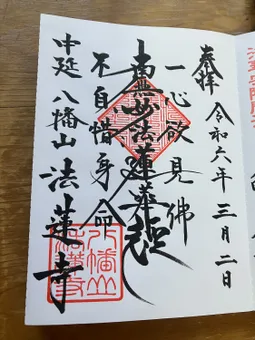 奉拝
令和六年三月二日
一心欲見佛
南無妙法蓮華経
不自惜身命
中延八幡山法蓮寺
八幡山
法蓮寺